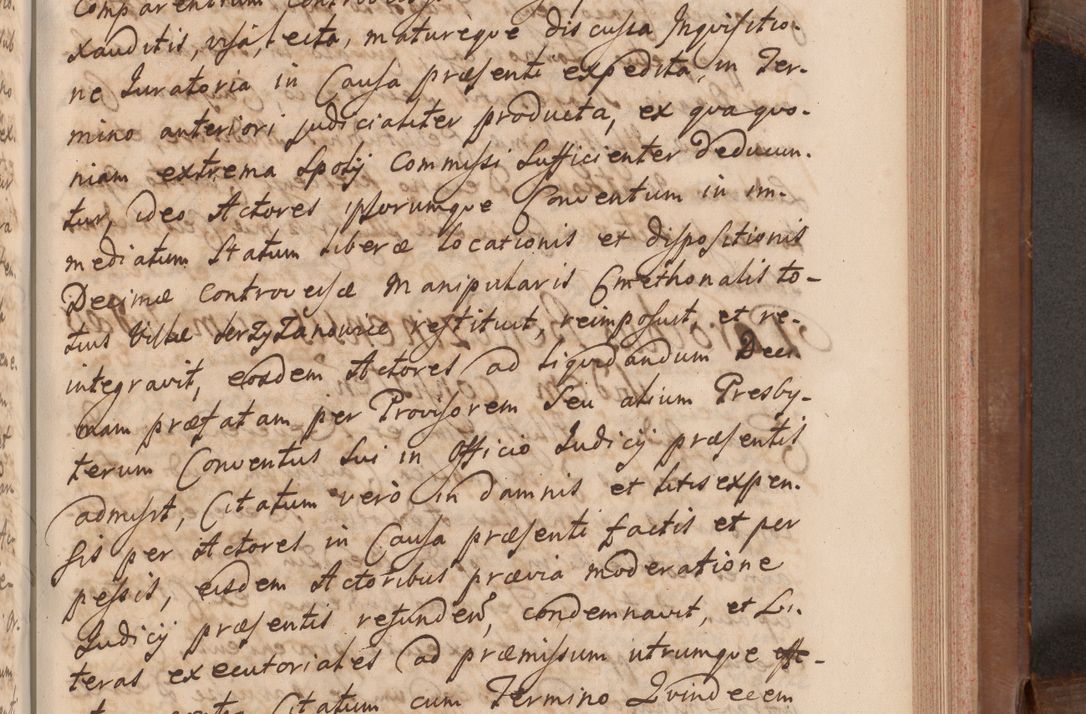 Comparentium Controversijs
xauditis, visa, lecta, matureque discussa Inquisitio-
ne Iuratoria in Causa præsenti expedita, in Ter-
mino anteriori judicialiter producta, ex qua quo-
niam extrema Spolij Commissi Sufficienter deducun-
tur, ideo Actores ipsorumque Conventum in im-
mediatum Statum liberæ locationis et dispositionis
Decimæ controversæ Manipularis Cmethonalis to-
tius Villæ Jerzyzanowice restituit, reimposuit et re-
integravit, eosdem Actores ad liquidandum Deci
mam præfatam per Provisorem Seu alium Presby-
terum Conventus Sui in Officio Iudicij præsentis
admisit, Citatum verò in damnis et litis expen-
sis per Actores in Causa præsenti factis et per
pessis, eisdem Actoribus prævia moderatione
Iudicij præsentis refunden, condemnavit, et Li-
teras executoriales ad præmissum utrumque effe-
Citatum cum Termino Quindecem